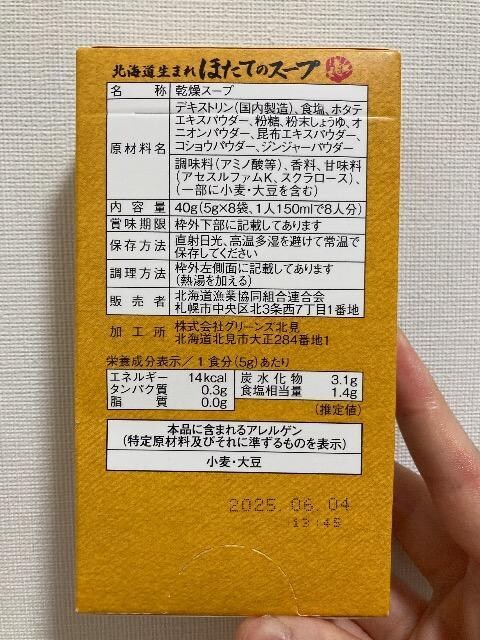 北海道生まれ ほたてのスープ
名 称 乾燥スープ
原材料名 デキストリン(国内製造)、食塩、ホタテ
エキスパウダー、粉糖、粉末しょうゆ、オ
ニオンパウダー、昆布エキスパウダー、
コショウパウダー、ジンジャーパウダー
調味料(アミノ酸等)、香料、甘味料
(アセスルファムK、スクラロース)、
(一部に小麦・大豆を含む)
内 容 量 40g(5g×8袋、1人150mlで8人分)
賞味期限 枠外下部に記載してあります
保存方法 直射日光、高温多湿を避けて常温で
保存してください
調理方法 枠外左側面に記載してあります
(熱湯を加える)
販 売 者 北海道漁業協同組合連合会
札幌市中央区北3条西7丁目1番地
加 工 所 株式会社グリーンズ北見
北海道北見市大正284番地1
栄養成分表示/1食分(5g)あたり
エネルギー 14kcal 炭水化物 3.1g
タンパク質 0.3g 食塩相当量 1.4g
脂 質 0.0g
(推定値)
本品に含まれるアレルゲン
(特定原材料及びそれに準ずるものを表示)
小麦・大豆
2025.06.04
13:45